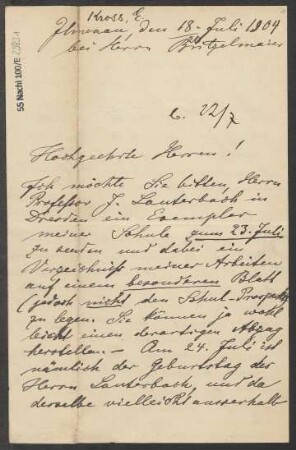 55 Nachl 100/E
Kross, E
Ilmenau, den 18. Juli 1904
bei Herrn
b. 22/7
Hochgeehrte Herren!
Ich möchte Sie bitten, Herrn
Professor J. Lauterbach in
Dresden ein Exemplar
meiner Schule zum 23. Juli
zu senden und dabei ein
Verzeichniss meiner Arbeiten
auf einem besonderen Blatt
jedoch nicht den Schul-Prospekt
zu legen. Sie können ja wohl
leicht einen derartigen Abzug
herstellen. – Am 24. Juli ist
nämlich der Geburtstag des
Herrn Lauterbach, und da
derselbe vielleicht ausserhalb